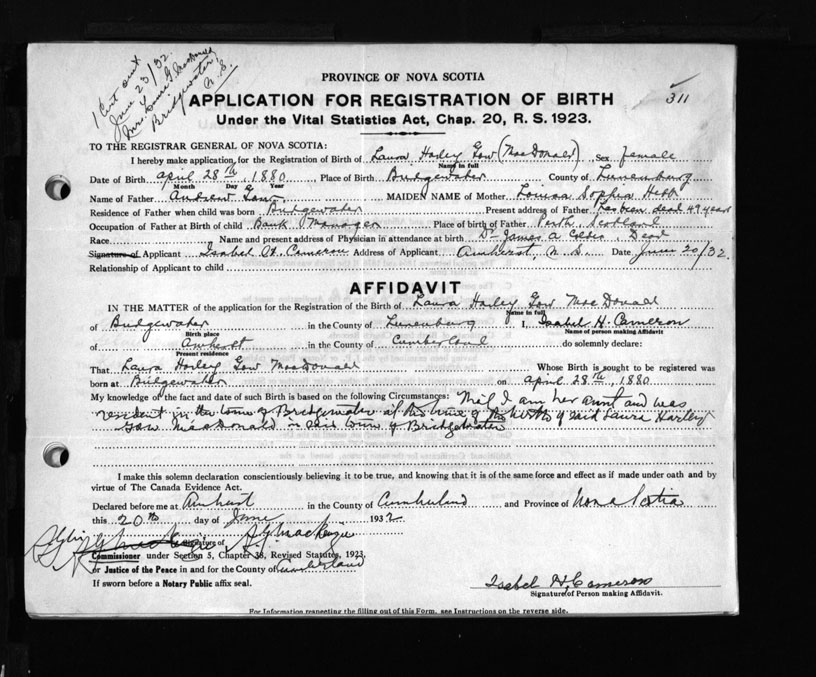 1 Cert sent
June 23/32.
Bridgewater,
N. S.
311
PROVINCE OF NOVA SCOTIA
APPLICATION FOR REGISTRATION OF BIRTH
Under the Vital Statistics Act, Chap. 20, R. S. 1923.
TO THE REGISTRAR GENERAL OF NOVA SCOTIA:
I hereby make application for the Registration of Birth of Laura Harley Gow (MacDonald), Sex female
Name in full
Date of Birth april 28th, 1880 Place of Birth Bridgewater County of Lunenburg
Month Day Year
Name of Father Andrew Gow MAIDEN NAME of Mother Louisa Sophia Hebb
Residence of Father when child was born Bridgewater Present address of Father has been dead 49 years
Occupation of Father at Birth of child Bank Manager Place of birth of Father Perth, Scotland
Race Name and present address of Physician in attendance at birth Dr James A Dead
Signature of Applicant Isabel H. Cameron Address of Applicant Amherst, N. S. Date June 20/32.
Relationship of Applicant to child
AFFIDAVIT
IN THE MATTER of the application for the Registration of the Birth of Laura Harley Gow MacDonald
Name in full
of Bridgewater in the County of Lunenburg I, Isabel H. Cameron
Birth place Name of person making Affidavit
of Amherst in the County of Cumberland do solemnly declare:
Present residence
That Laura Harley Gow MacDonald Whose Birth is sought to be registered was
born at Bridgewater on april 28th, 1880
My knowledge of the fact and date of such Birth is based on the following Circumstances: That I am her aunt and was
resident in the town of Bridgewater at the time of the birth of said Laura Harley
Gow MacDonald in said town of Bridgewater
I make this solemn declaration conscientiously believing it to be true, and knowing that it is of the same force and effect as if made under oath and by
virtue of The Canada Evidence Act.
Declared before me at Amherst in the County of Cumberland and Province of Nova Scotia
this 20th day of June 1932
Signature of A. G. Mackenzie
Commissioner under Section 5, Chapter 38, Revised Statutes, 1923
or Justice of the Peace in and for the County of Cumberland
If sworn before a Notary Public affix seal.
Isabel H. Cameron
Signature of Person making Affidavit.
For Information respecting the filling out of this Form, see Instructions on the reverse side.